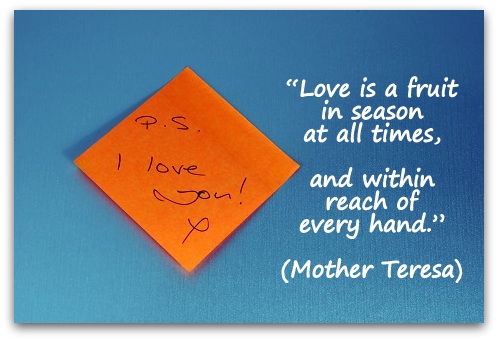 P.S.
I love
you!
x
“Love is a fruit
in season
at all times,
and within
reach of
every hand.”
(Mother Teresa)